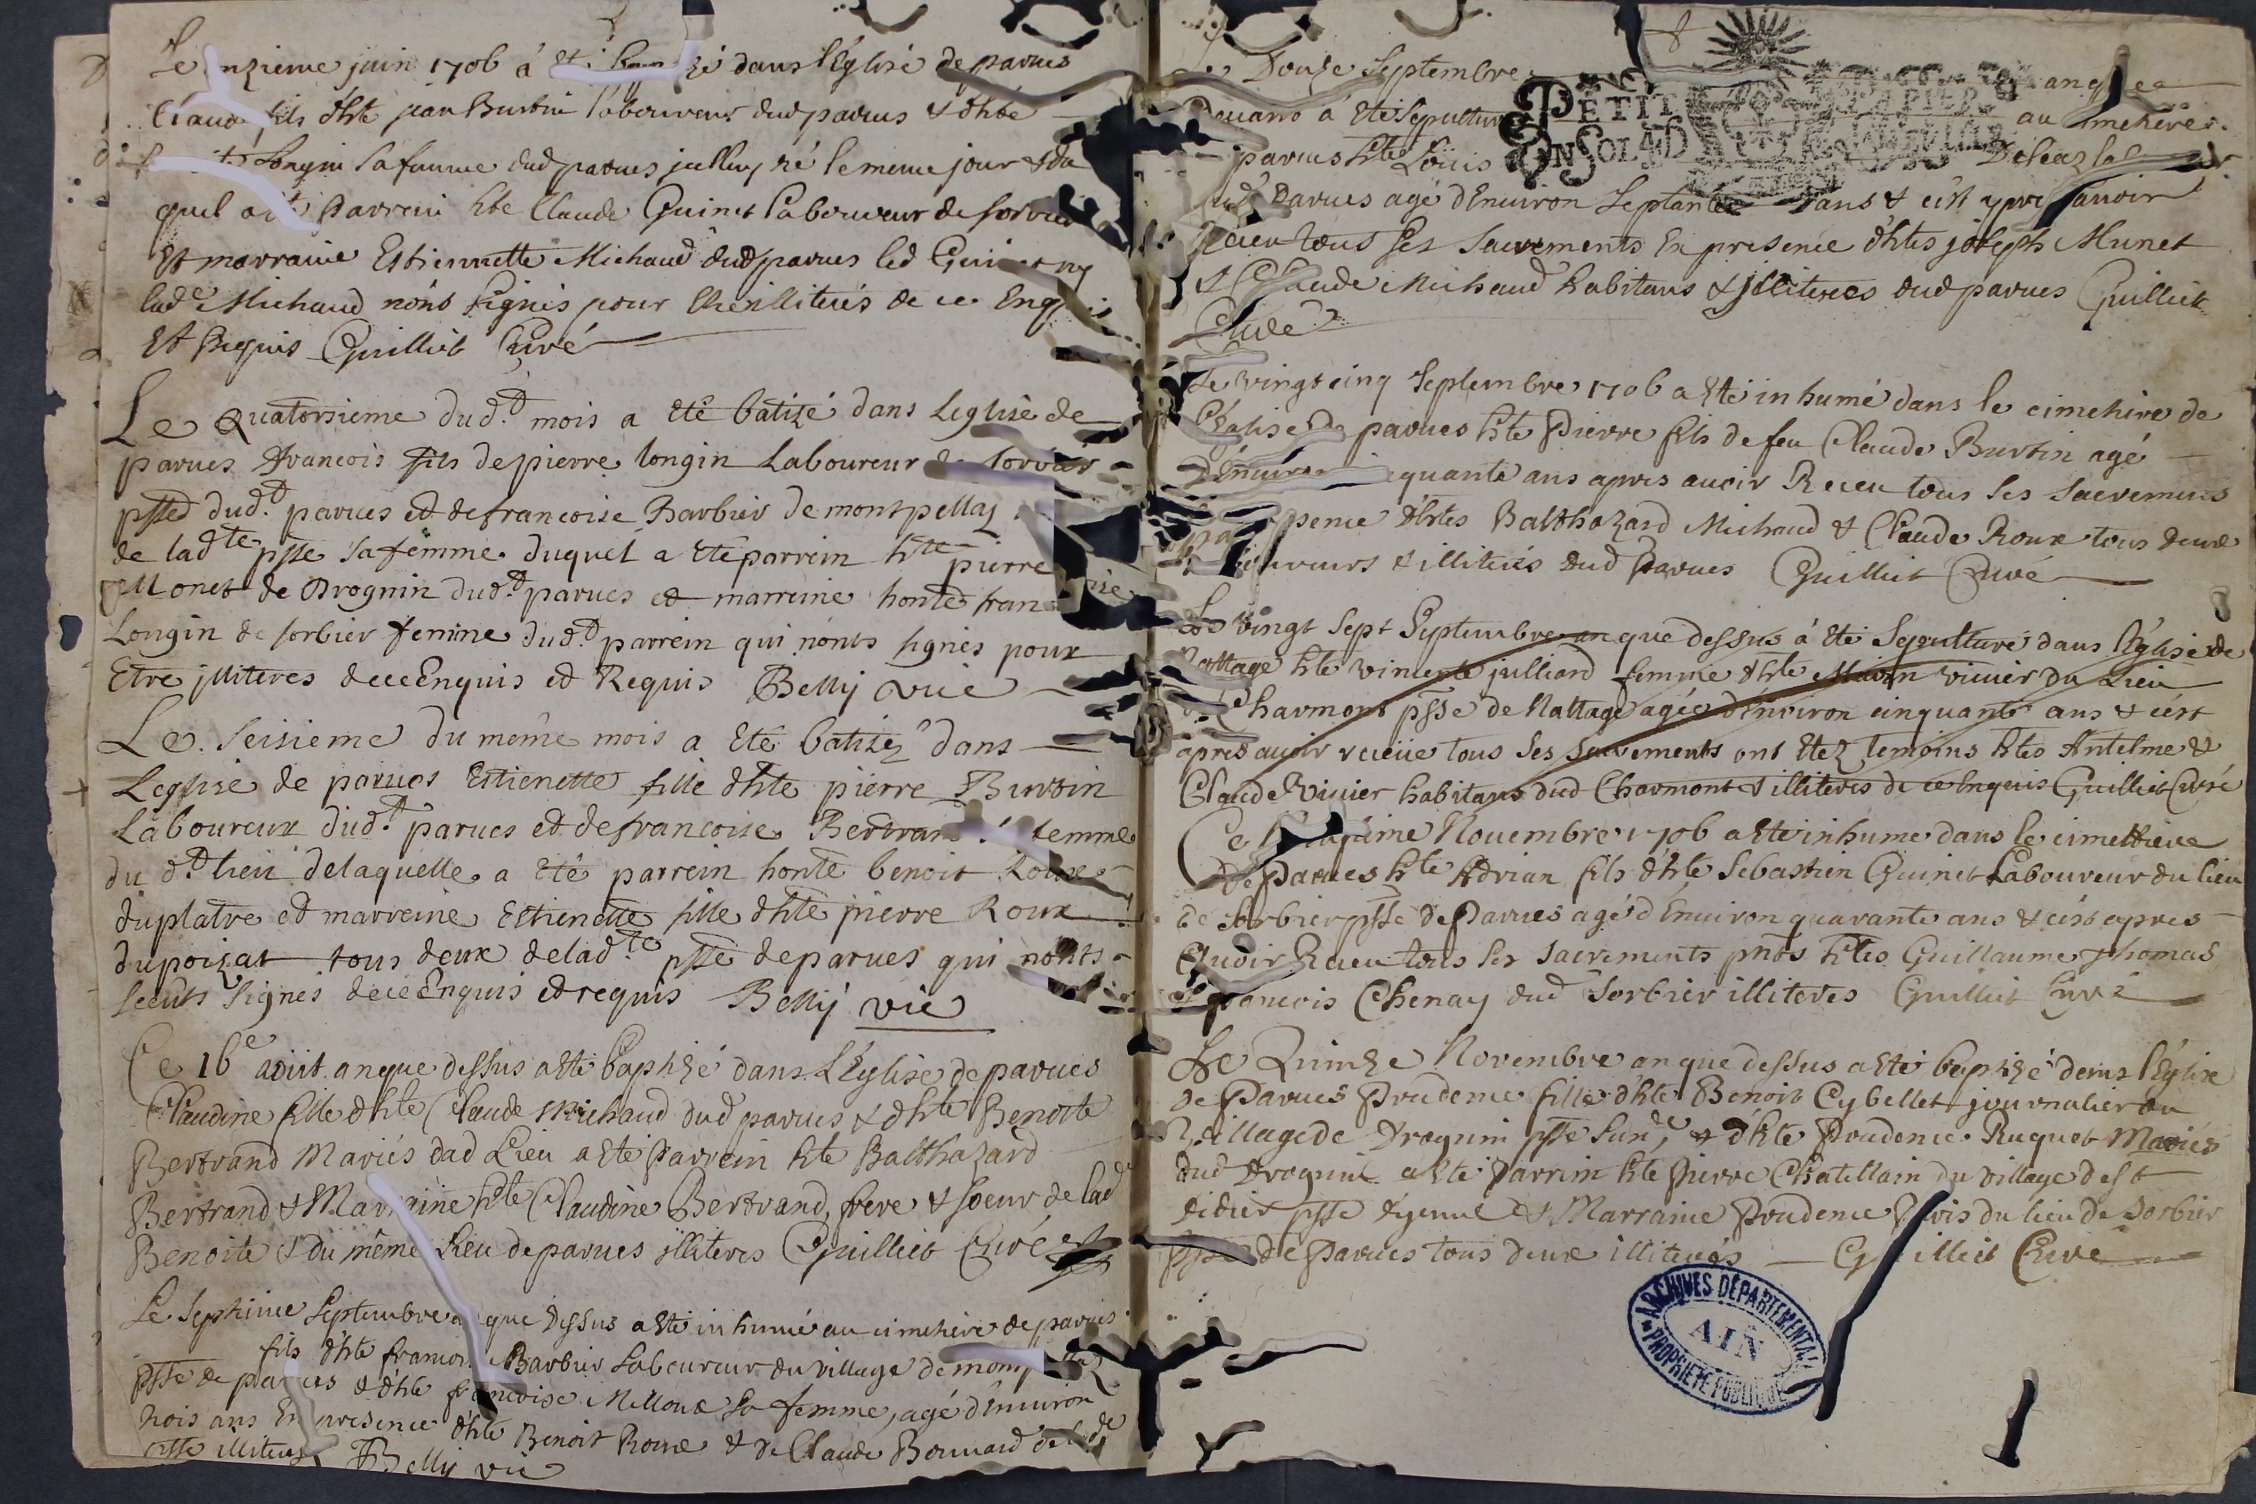 juin 1706 á dans l'Église de parues
fils d'hte jean Burtin laboureur dud parues & d'hte
Longin sa femme dud parues jcelluy né le meme jour &
quel parrein hte Claude Guinet laboureur de sorbier
et marraine Estiennette Michaud dud parues led Guinet ny
lade Michaud nónt signés pour être illiterés de ce Enquis
Et Requis Guilliet Curé
Le Quatorsieme dudt mois a eté batizé dans Leglise de
parues francois fils de pierre longin Laboureur de sorbier
psse dudt parues et de francoise Barbier de montpellaz
de ladte psse sa femme duquel a eté parrein hte pierre
Monet de Drognin dudt parues et marreine honte fran
Longin de sorbier femine dudt parrein qui nónts signés pour
Etre jlliteres de ce Enquis et Requis Belly vic
Le seisieme du même mois a eté batizéz dans
Leglise de parues Etienette fille d'hte pierre Burtin
Laboureur dudt parues et de francoise Bertrand femme
du dt lieu de laquelle a eté parrein honte benoit Roux
du platre et marreine Etienette fille d'hte pierre Roux
du poizat tous deux de ladte psse de parues qui nonts
sceuts signés de ce Enquis et requis Belly vic
Ce 16e aoüt an que dessus a esté baptizé dans L'Église de parues
Claudine fille d'hte Claude Michaud dud parues & d'hte Benoite
Bertrand Mariés dud Lieu a esté Parrein hte Balthazard
Bertrand & Marraine hte Claudine Bertrand, frere & soeur de lad
Benoite & du même Lieu de parues illiteres Guilliet Curé
Le septieme Septembre que dessus a esté inhumé au cimetiere de parues
fils d'hte francois Barbier Laboureur du village de
psse de parues & d'hte francoise Milloux sa femme, agé d'Enuiron
trois ans En presence d'hte Benoit Roux & de Claude Bonnard de lade
psse illiteres Belly vic
Douze Septembre
á eté sepulturé PETIT PAPIER au cimetiere
parues hte Loüis UN SOL
Parues agé d'Enuiron Septante ans & c'est apres auoir
Receu tous ses Sacrements En presence d'htes joseph Munet
& Claude Michaud habitans & jlliteres dud parues Guilliet
Curé
Le vingt cinq Septembre 1706 a esté inhumé dans le cimetiere de
l'Église de parues hte Pierre fils de feu Claude Burtin agé
d'Enuiron quante ans apres auoir Receu tous ses sacremens
d'htes Balthazard Michaud & Claude Roux tous deux
Laboureurs & illiterés dud Parues Guilliet Curé
Le vingt sept Septembre an que dessus á eté sepulturé dans l'Église de
Nattage hte vincente julliard femme d'hte viuier du Lieu
de Charmont psse de Nattage agée d'enuiron cinquante ans & c'est
apres auoir receüe tous ses sacrements ont etez temoins htes Antelme &
Claude Viuier habitans dud Charmont & illiteres de ce Enquis Guilliet Curé
Ce Nouembre 1706 a esté inhumé dans le cimettiere
de Parues hte Adrian fils d'hte Sebastien Guinet Laboureur du lieu
de Sorbier psse de Parues agé d'Enuiron quarante ans & c'est apres
Auoir Receu tous ses sacrements pnts htes Guillaume Thomas
francois Chenay dud Sorbier illiteres Guilliet Curé
Le Quinze Novembre an que dessus a esté baptizé dans l'Église
de Parues Prudence fille d'hte Benoit Cybellet journalier du
Village de Drognin psse & d'hte Prudence Ruquet Mariés
dud Drognin a esté Parrein hte Pierre Chatillain du Village de St
Didier psse & Marraine Prudence du lieu de Sorbier
psse de Parues tous deux illiterés Guilliet Curé
ARCHIVES DÉPARTEMENTALES
AIN
PROPRIÉTÉ PUBLIQUE